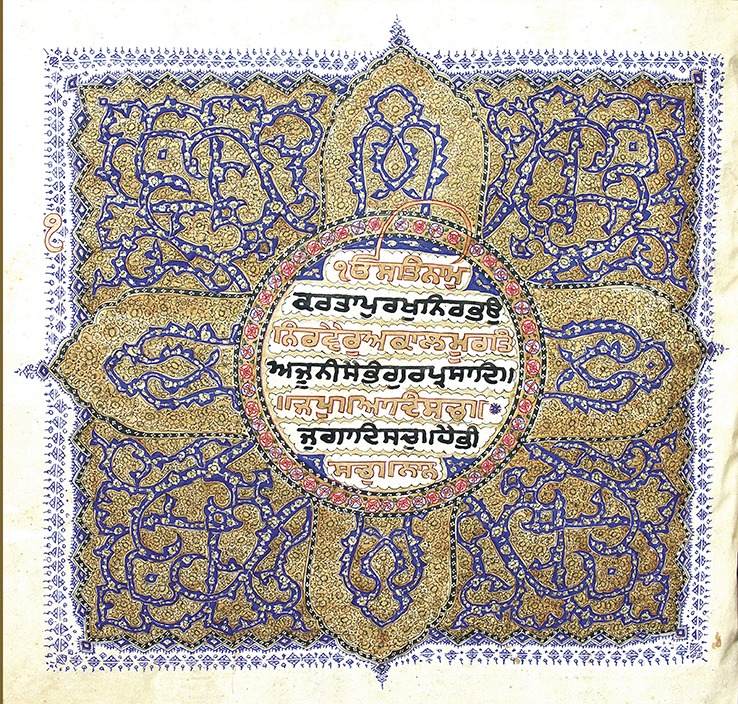 ੧ਓ ਸਤਿਨਾਮੁ
ਕਰਤਾਪੁਰਖੁਨਿਰਭਉ
ਨਿਰਵੈਰੁਅਕਾਲਮੂਰਤਿ
ਅਜੂਨੀਸੈਭੰਗੁਰਪ੍ਰਸਾਦਿ॥
॥ਜਪੁ॥ਆਦਿਸਚੁ॥
ਜੁਗਾਦਿਸਚੁ॥ਹੈਭੀ
ਸਚੁ॥ਨਨ